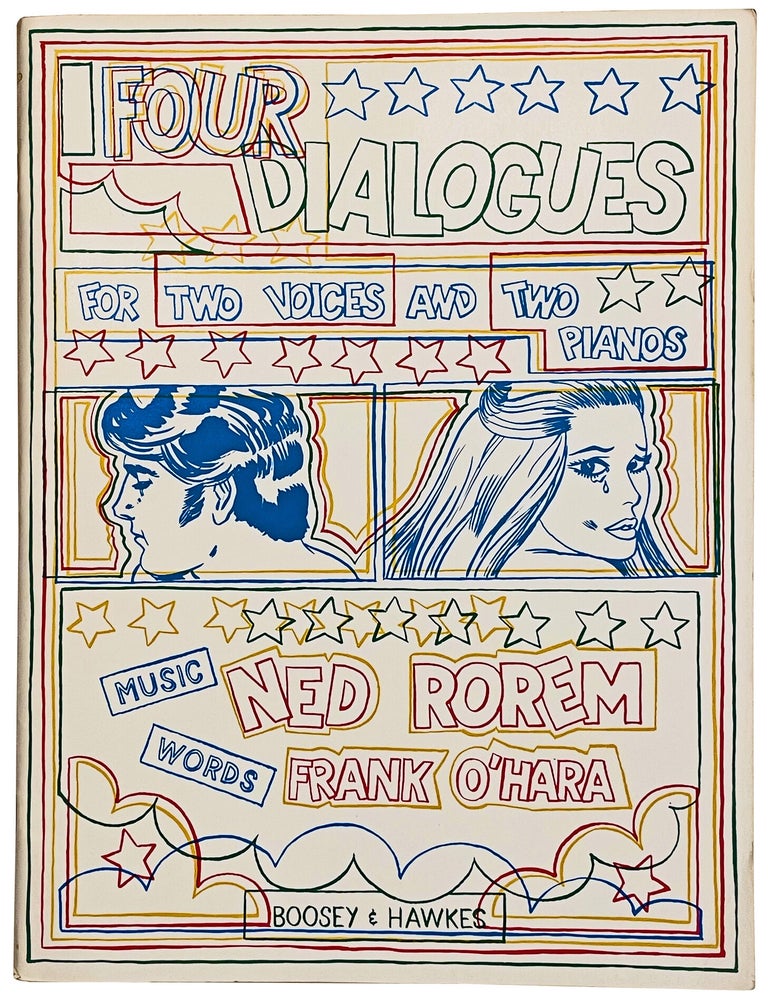 FOUR
DIALOGUES
FOR TWO VOICES AND TWO
PIANOS
MUSIC NED ROREM
WORDS FRANK O'HARA
BOOSEY & HAWKES